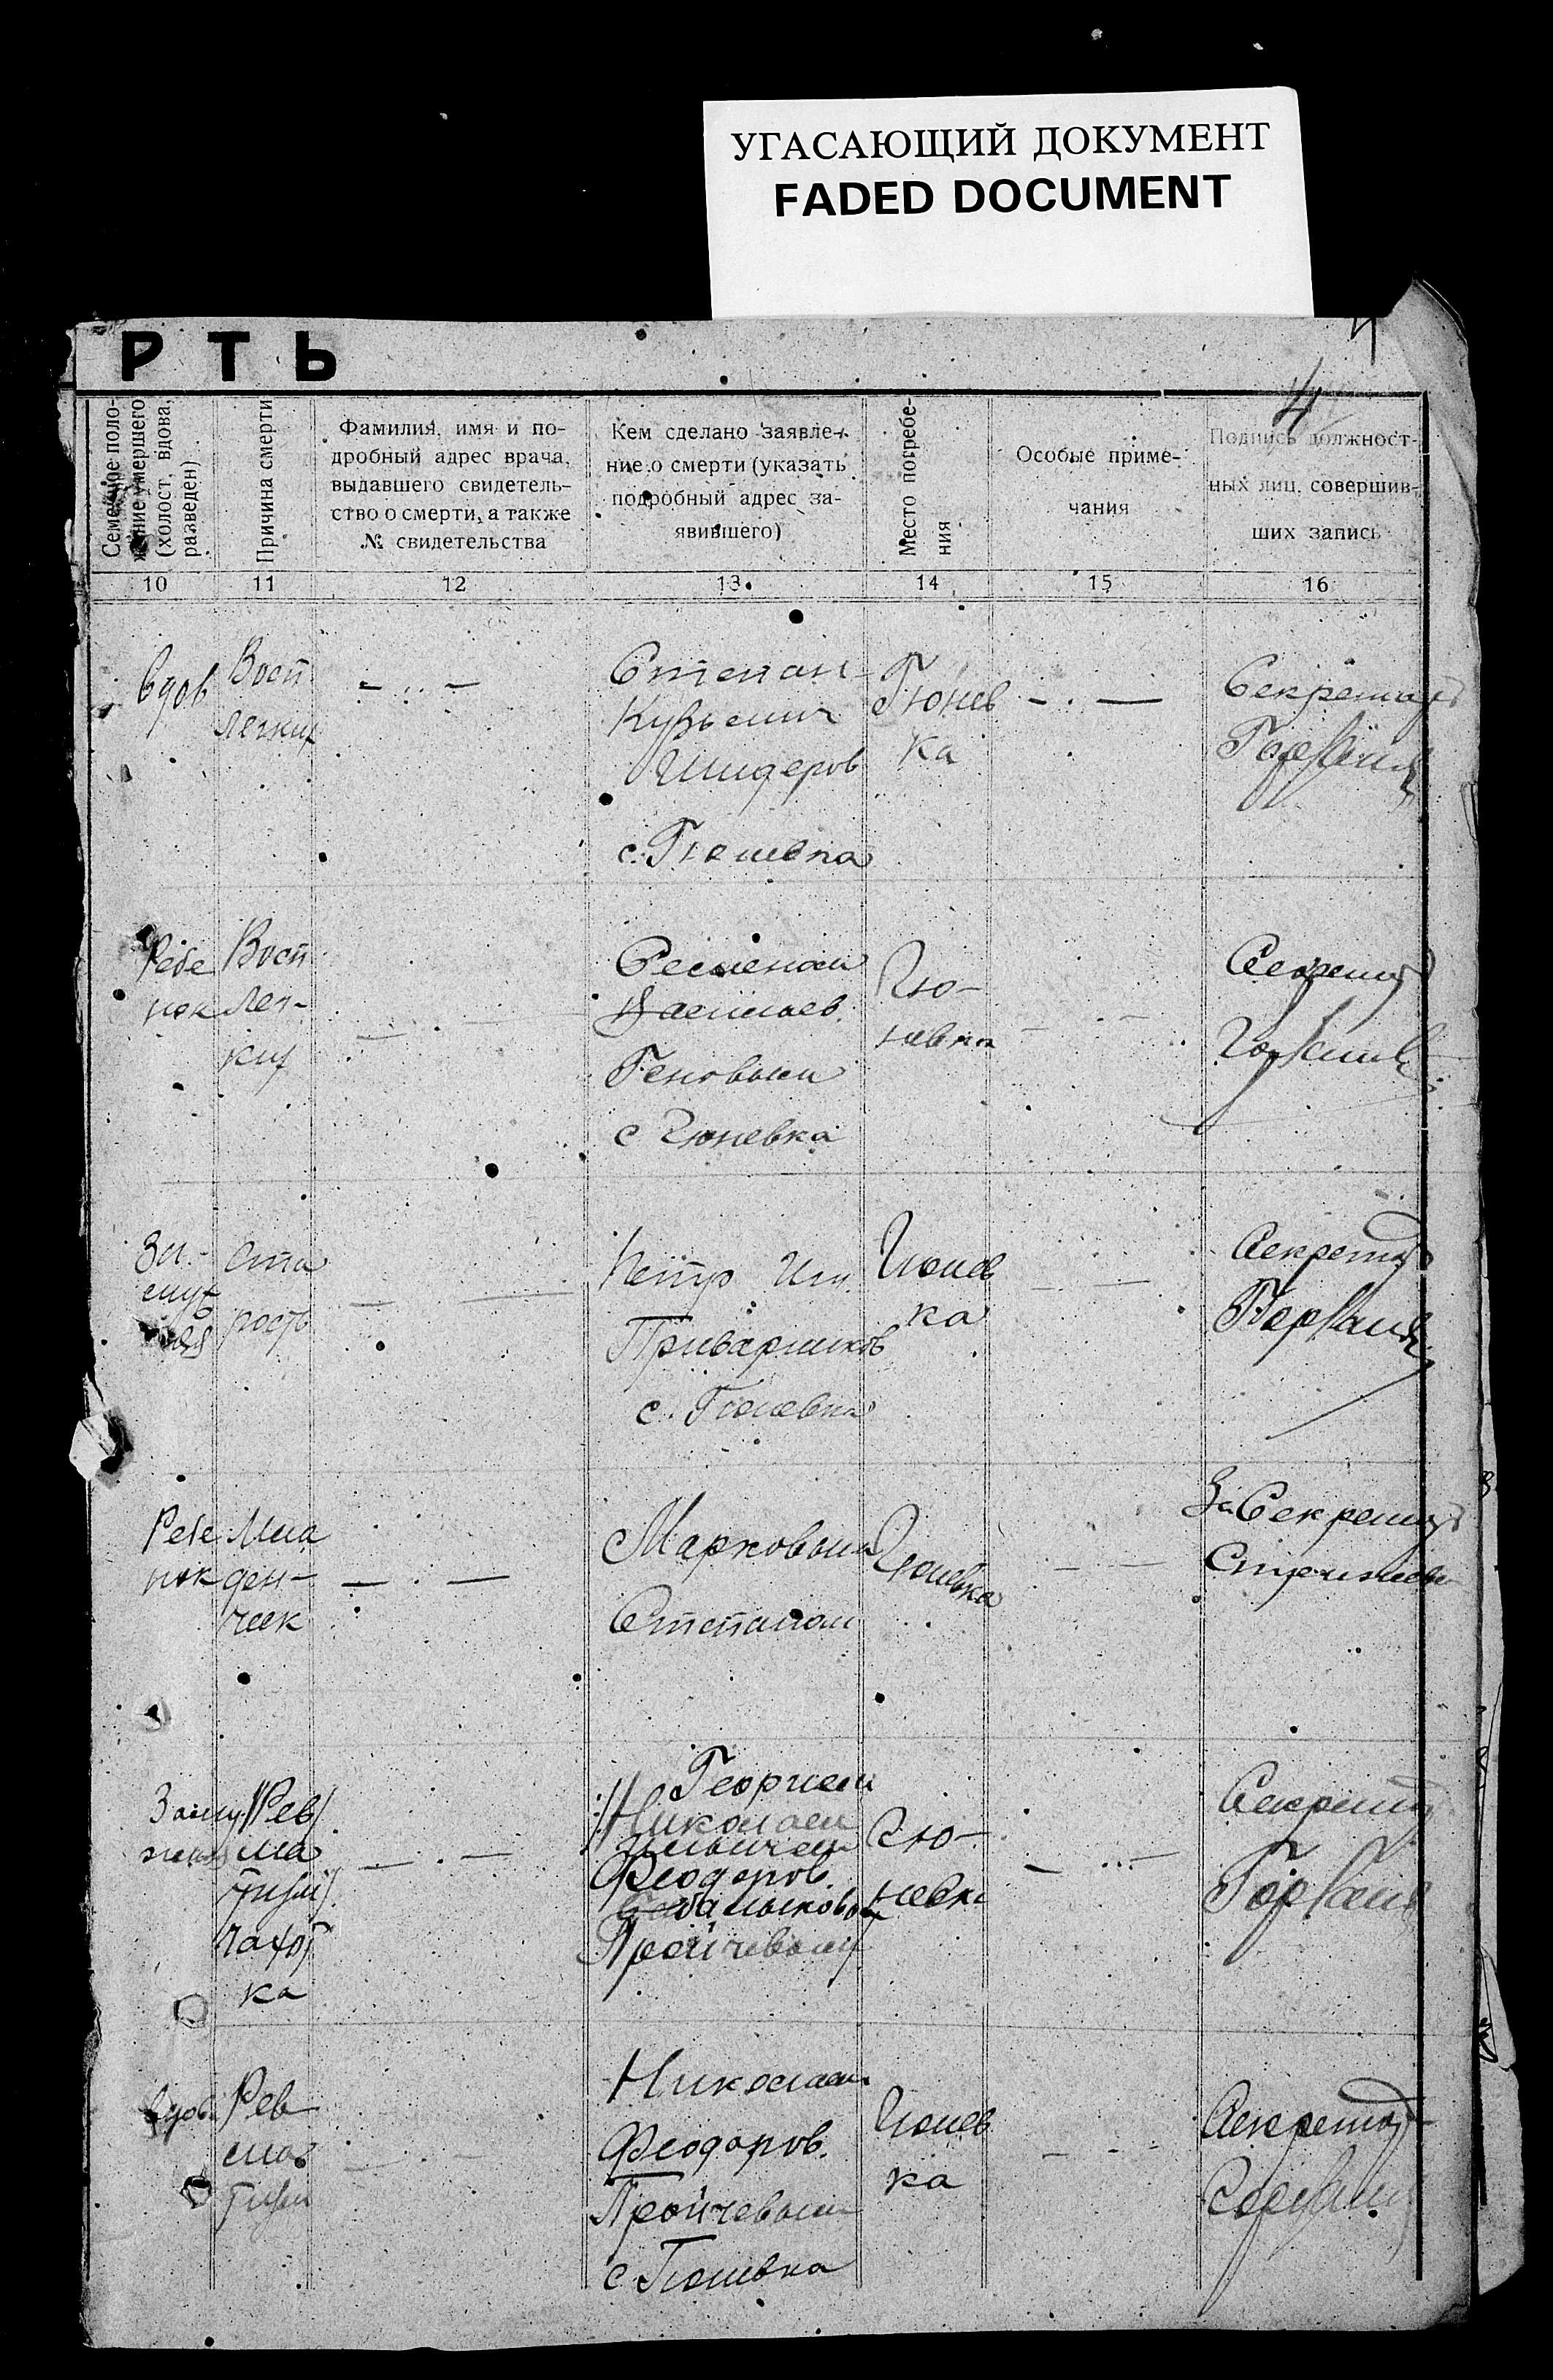 УГАСАЮЩИЙ ДОКУМЕНТ
FADED DOCUMENT
РТЬ
4
Семейное поло-
жение умершего
(холост, вдова,
разведен)
Причина смерти
Фамилия, имя и по-
дробный адрес врача,
выдавшего свидетель-
ство о смерти, а также
№ свидетельства
Кем сделано заявле-
ние о смерти (указать
подробный адрес за-
явившего)
Место погребе-
ния
Особые приме-
чания
Подпись должност-
ных лиц, совершив-
ших запись
10 11 12 13 14 15 16
вдов
Восп
легких
Степан
Кузьмич
Шидеров
с. Гюневка
Гюнев
ка
Секретарь
Ребе
нок
Восп
лег-
ких
Семеном
Васильев.
Геновым
с Гюневка
Гю-
невка
Секретарь
За-
муж
няя
Ста
рость
Петр Ил.
Приваршков
с. Гюневка
Гюнев
ка
Секретарь
Ребе
нок
Мла
ден-
чек
Марковым
Степаном
Гюневка
За Секретар
Замуж
няя
Рев
ма
тизм
Чахот
ка
Георгием
Николаем
Ильичем
Феодоров.
Пройчевым
Гю-
невка
Секретарь
вдов.
Рев
ма
тизм
Николаем
Феодоров.
Пройчевым
с. Гюневка
Гюнев
ка
Секретарь